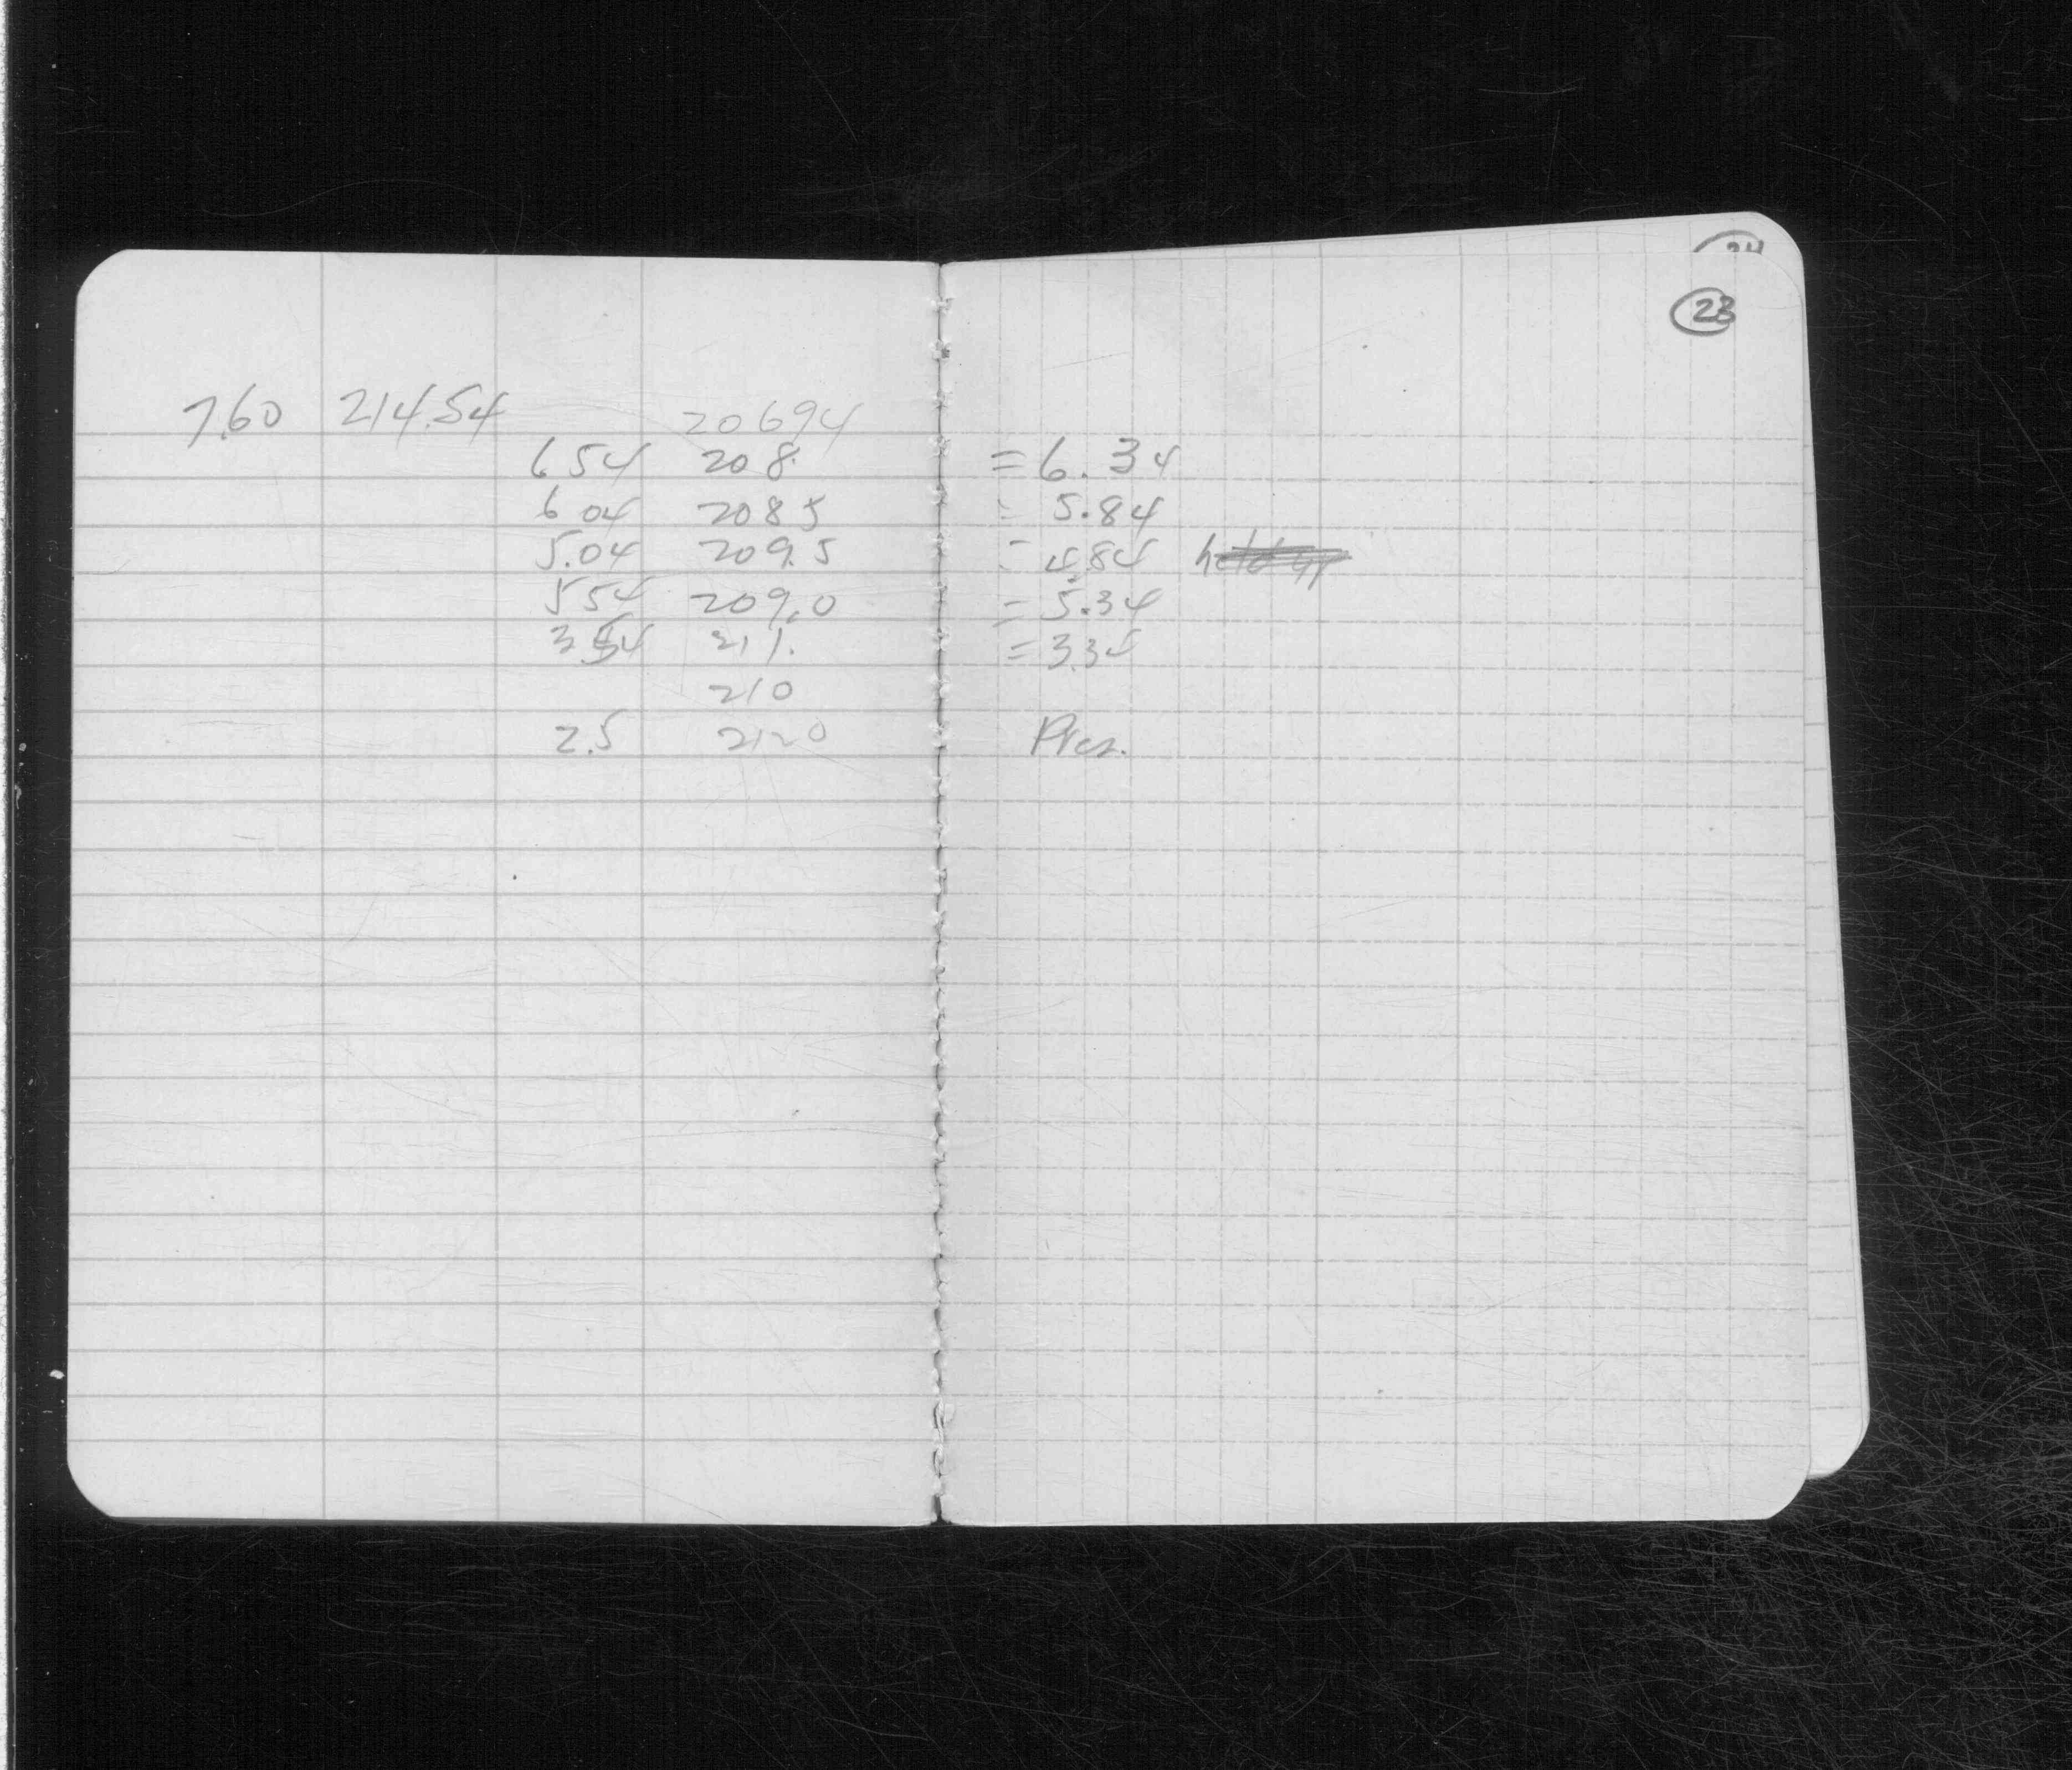 24
23
7.60 214.54 206 94
6 54 208. = 6.34
6 04 208 5 = 5.84
5.04 209.5 = 4.84
5 54 209.0 = 5.34
3.54 211. = 3.34
210
2.5 212 0 Pres.